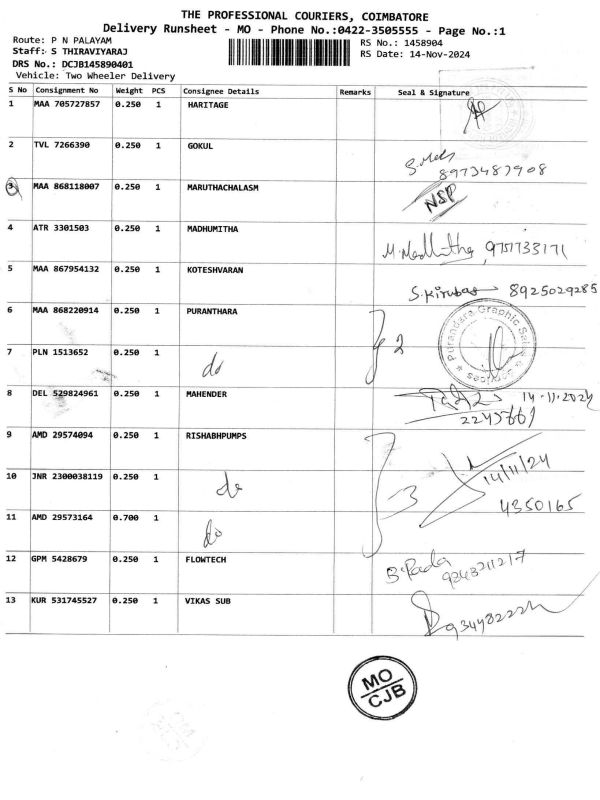 THE PROFESSIONAL COURIERS, COIMBATORE
Delivery Runsheet - MO - Phone No.:0422-3505555 - Page No.:1
Route: P N PALAYAM
RS No.: 1458904
Staff: S THIRAVIYARAJ
RS Date: 14-Nov-2024
DRS No.: DCJB145890401
Vehicle: Two Wheeler Delivery
S No Consignment No Weight PCS Consignee Details Remarks Seal & Signature
1 MAA 705727857 0.250 1 HARITAGE
2 TVL 7266390 0.250 1 GOKUL
8973487908
3 MAA 868118007 0.250 1 MARUTHACHALASM NSP
4 ATR 3301503 0.250 1 MADHUMITHA
M. Madhumitha, 9751733171
5 MAA 867954132 0.250 1 KOTESHVARAN
S. Kirubas 8925029285
6 MAA 868220914 0.250 1 PURANTHARA
2
Purandara Graphic Sales & Services
7 PLN 1513652 0.250 1 do
8 DEL 529824961 0.250 1 MAHENDER
14.11.2024
9 AMD 29574094 0.250 1 RISHABHPUMPS
14/11/24
10 JNR 2300038119 0.250 1 do 3
4350165
11 AMD 29573164 0.700 1 do
12 GPM 5428679 0.250 1 FLOWTECH
13 KUR 531745527 0.250 1 VIKAS SUB
MO
CJB